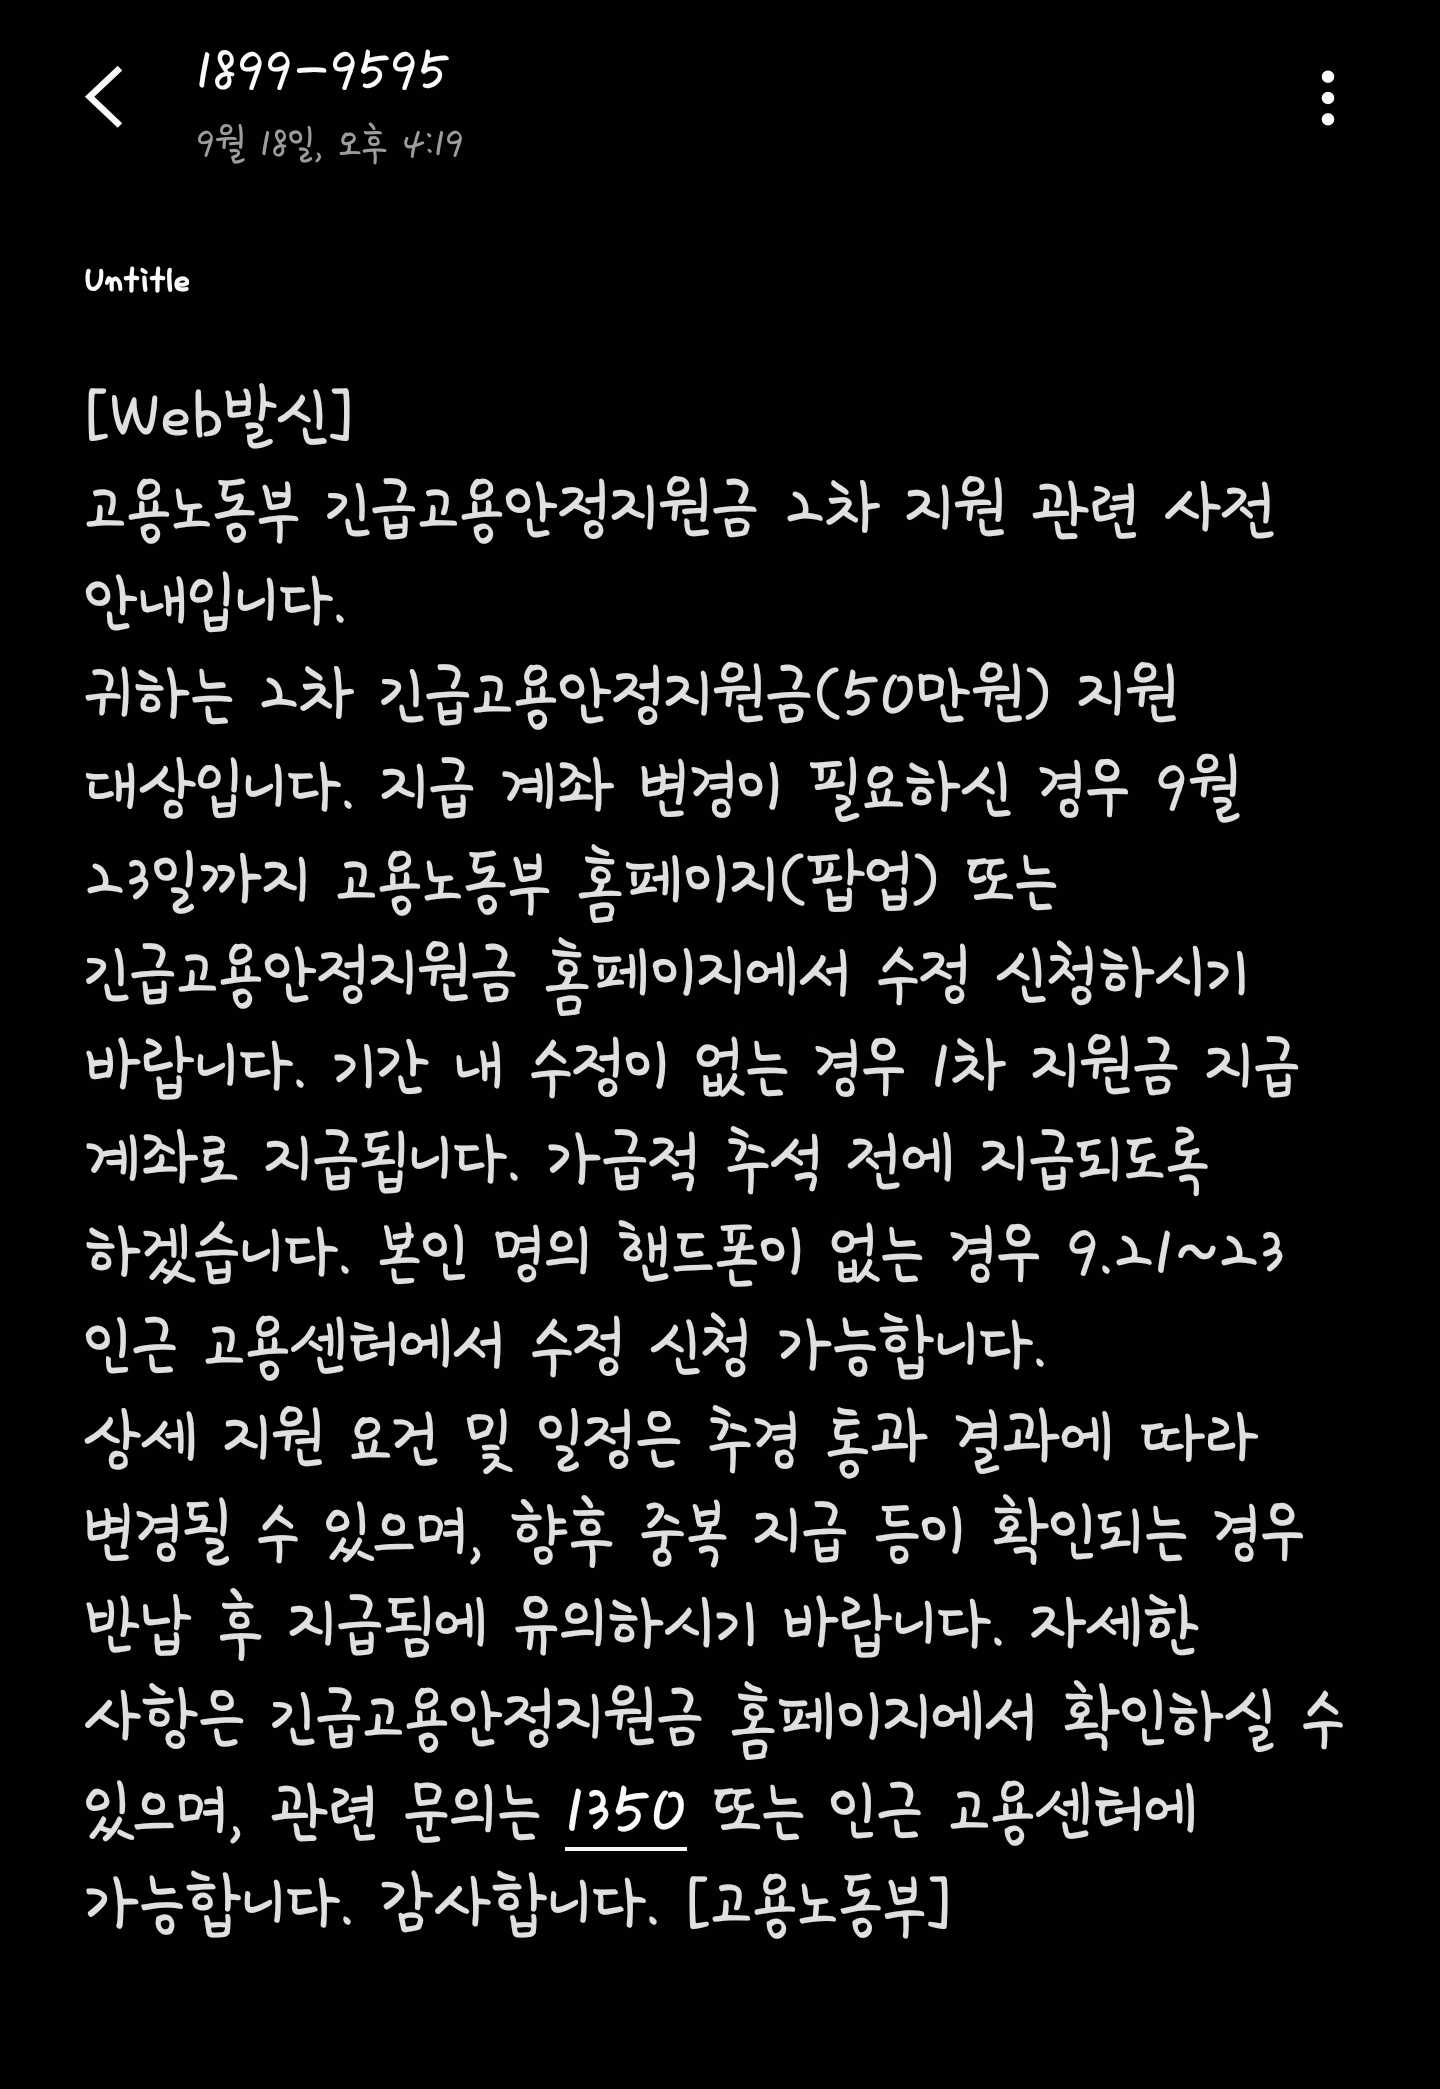 1899-9595
9월 18일, 오후 4:19
Untitle
[Web발신]
고용노동부 긴급고용안정지원금 2차 지원 관련 사전
안내입니다.
귀하는 2차 긴급고용안정지원금(50만원) 지원
대상입니다. 지급 계좌 변경이 필요하신 경우 9월
23일까지 고용노동부 홈페이지(팝업) 또는
긴급고용안정지원금 홈페이지에서 수정 신청하시기
바랍니다. 기간 내 수정이 없는 경우 1차 지원금 지급
계좌로 지급됩니다. 가급적 추석 전에 지급되도록
하겠습니다. 본인 명의 핸드폰이 없는 경우 9.21~23
인근 고용센터에서 수정 신청 가능합니다.
상세 지원 요건 및 일정은 추경 통과 결과에 따라
변경될 수 있으며, 향후 중복 지급 등이 확인되는 경우
반납 후 지급됨에 유의하시기 바랍니다. 자세한
사항은 긴급고용안정지원금 홈페이지에서 확인하실 수
있으며, 관련 문의는 1350 또는 인근 고용센터에
가능합니다. 감사합니다. [고용노동부]